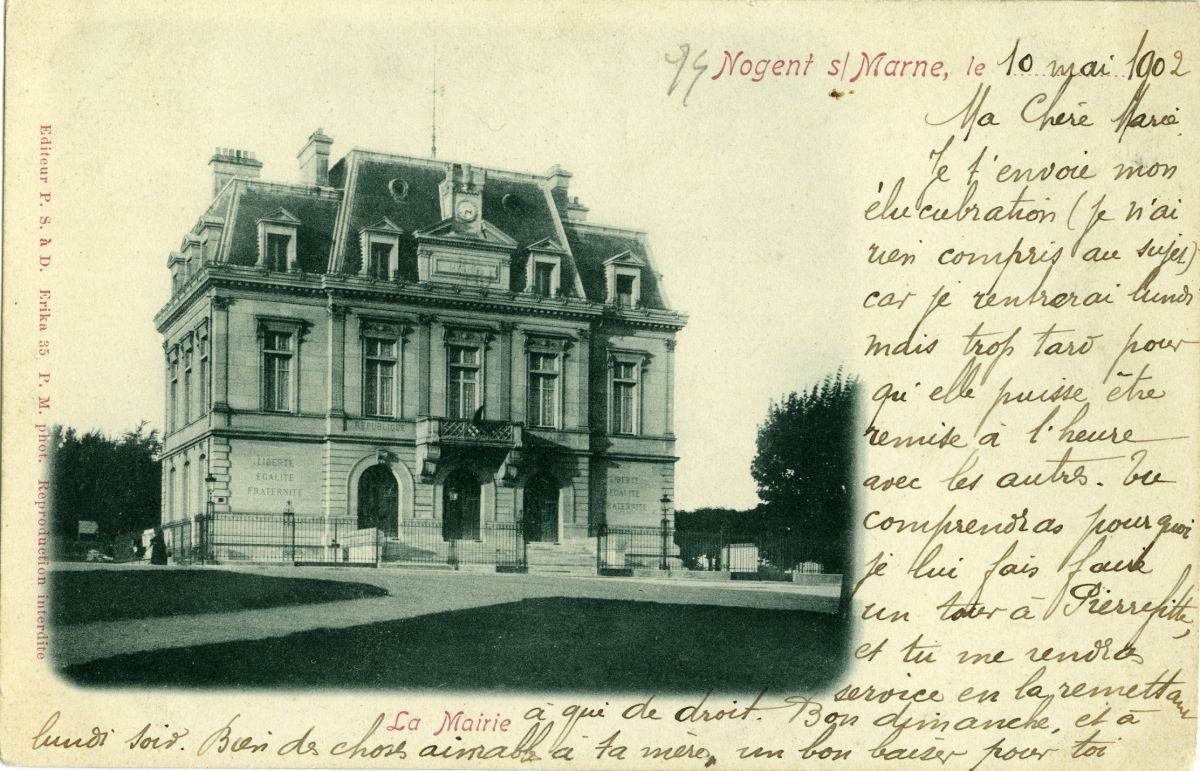 94 Nogent s/Marne, le 10 mai 1902
Ma Chère Marie
Je t'envoie mon
élucubration (je n'ai
rien compris au sujet)
car je rentrerai lundi
mais trop tard pour
qu'elle puisse être
remise à l'heure
avec les autres. Tu
comprendras pourquoi
je lui fais faire
un tour à Pierrefitte,
et tu me rendras
service en la remettant
à qui de droit. Bon dimanche, et à
lundi soir. Bien des choses aimables à ta mère, un bon baiser pour toi
La Mairie
Editeur P. S. à D. Erika 35 P. M. phot. Reproduction interdite
RÉPUBLIQUE
LIBERTÉ
EGALITÉ
FRATERNITÉ
LIBERTÉ
EGALITÉ
FRATERNITÉ